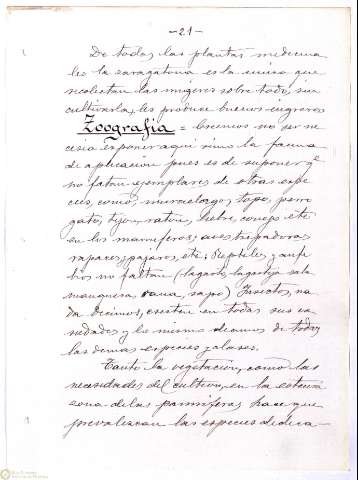 -21-
De todas las plantas medicina
les la zaragatona es la única que
recolectan las mugeres sobre todo, sin
cultivarla, les produce buenos ingresos.
Zoografía = Creemos no ser ne
cesia esponer aquí sinó la fauna
de aplicación pues es de suponer qe
no faltan ejemplares de otras espe
cies, como, murcielago, topo, perro
gato, tejon, raton, liebre, conejo etc
en los mamiferos; aves trepadoras,
rapaces, pajaros, etc; Reptiles, y anfi
bios no faltan (lagarto, lagartija sala
manquera, rana, sapo) Insectos, na
da decimos, existen en todas sus va
riedades, y lo mismo decimos de todas
las demas especies y clases.
Tanto la vegetacion, como las
necesidades del cultivo, en la estensa
zona de las panniferas, hace que
prevalezcan las especies dedica-